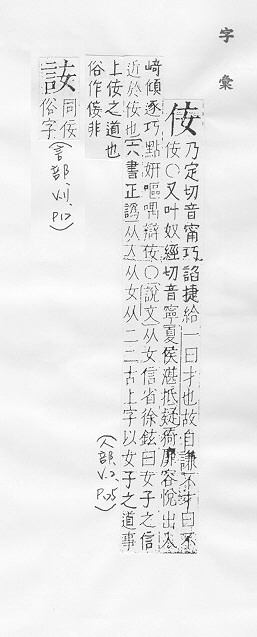 字彙
佞 乃定切音甯巧諂捷給一曰才也故自謙不才曰不
佞〇又叶奴經切音寧夏侯湛抵疑猗靡容悅出入
崎傾逐巧點妍嘔喁辯佞〇說文从女信省徐鉉曰女子之信
近於佞也六書正譌从亼从女从二二古上字以女子之道事
上佞之道也
俗作倿非
(人部、V.2、P.25)
同佞
俗字
(言部、V.11、P.12)